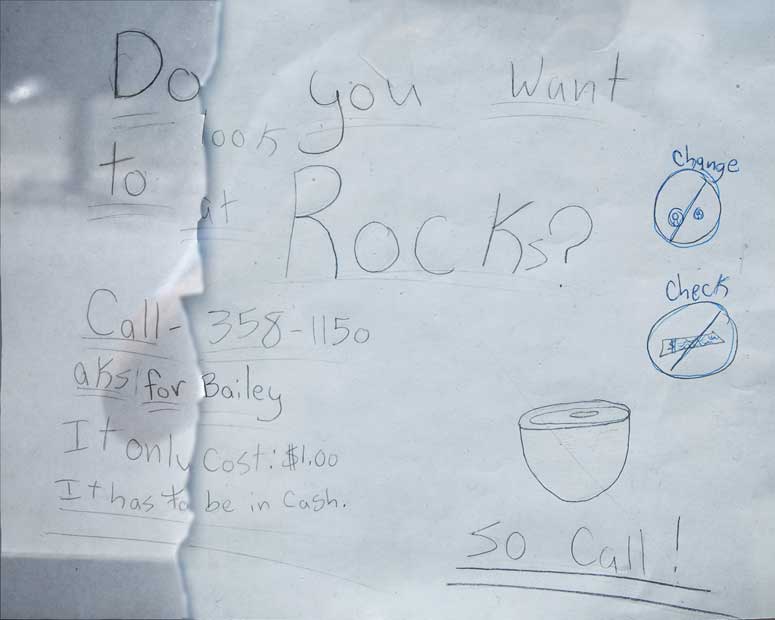 Do you Want
to look at Rocks?
Change
Check
$
Call - 358-1150
aks for Bailey
It only Cost: $1.00
It has to be in Cash.
So Call!